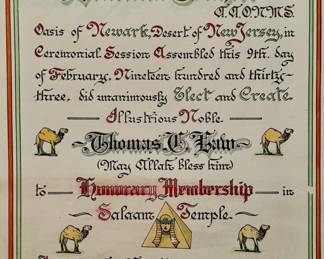 A.A.O.N.M.S.
Oasis of Newark, Desert of New Jersey, in
Ceremonial Session Assembled this 9th. day
of February, Nineteen hundred and thirty-
three, did unanimously Elect and Create
Illustrious Noble
Thomas E. Law
(May Allah bless him)
to Honorary Membership in
Salaam Temple.